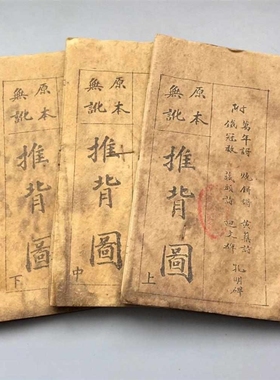 原本
無訛
推背圖
下
原本
無訛
推背圖
中
原本
無訛
推背圖
上
附
萬年歌
燒餅歌
黃蘗詩
鐵冠數
孔明碑